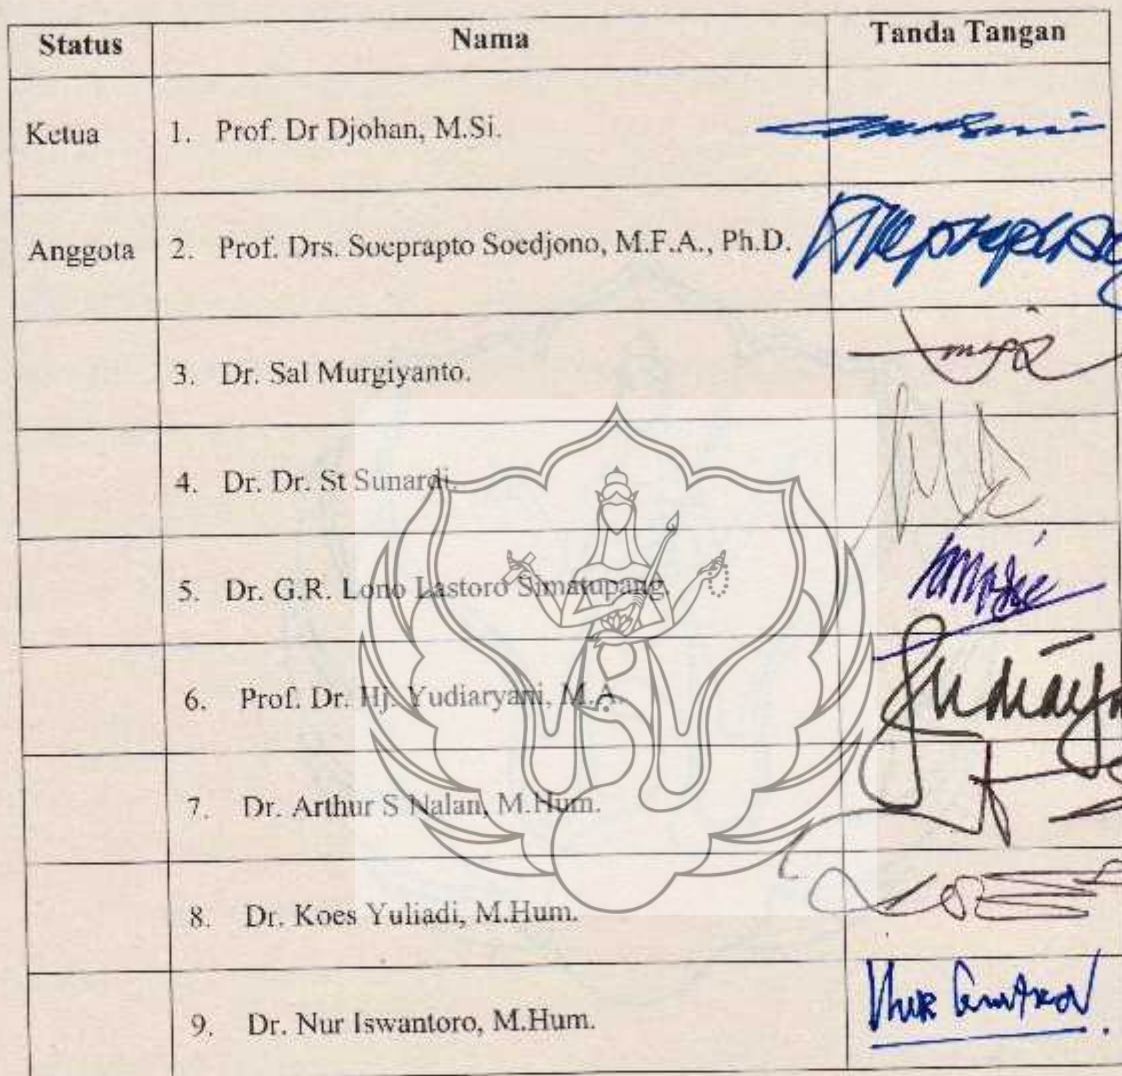 Status Nama Tanda Tangan
Ketua 1. Prof. Dr Djohan, M.Si.
Anggota 2. Prof. Drs. Soeprapto Soedjono, M.F.A., Ph.D.
3. Dr. Sal Murgiyanto.
4. Dr. Dr. St Sunardi.
5. Dr. G.R. Lono Lastoro Simatupang.
6. Prof. Dr. Hj. Yudiaryani, M.A.
7. Dr. Arthur S Nalan, M.Hum.
8. Dr. Koes Yuliadi, M.Hum.
9. Dr. Nur Iswantoro, M.Hum.